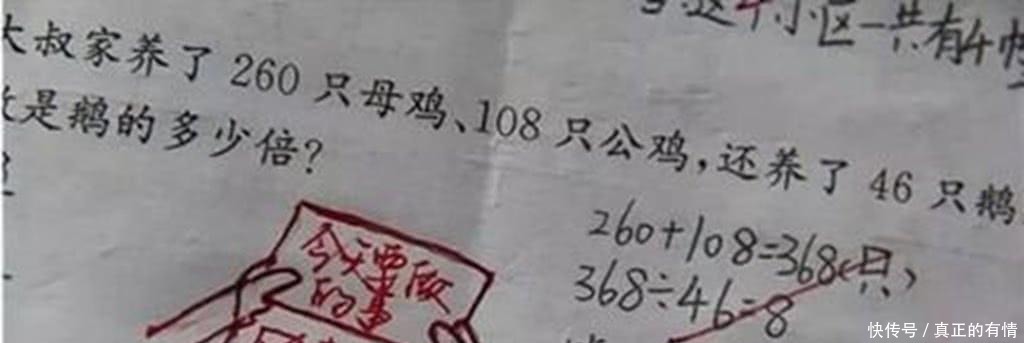 这个小区一共有4幢
大叔家养了 260 只母鸡、108 只公鸡，还养了 46 只鹅
是鹅的多少倍?
260+108=368(只)
368÷46=8
今天要做
的事
快传号 / 真正的有情